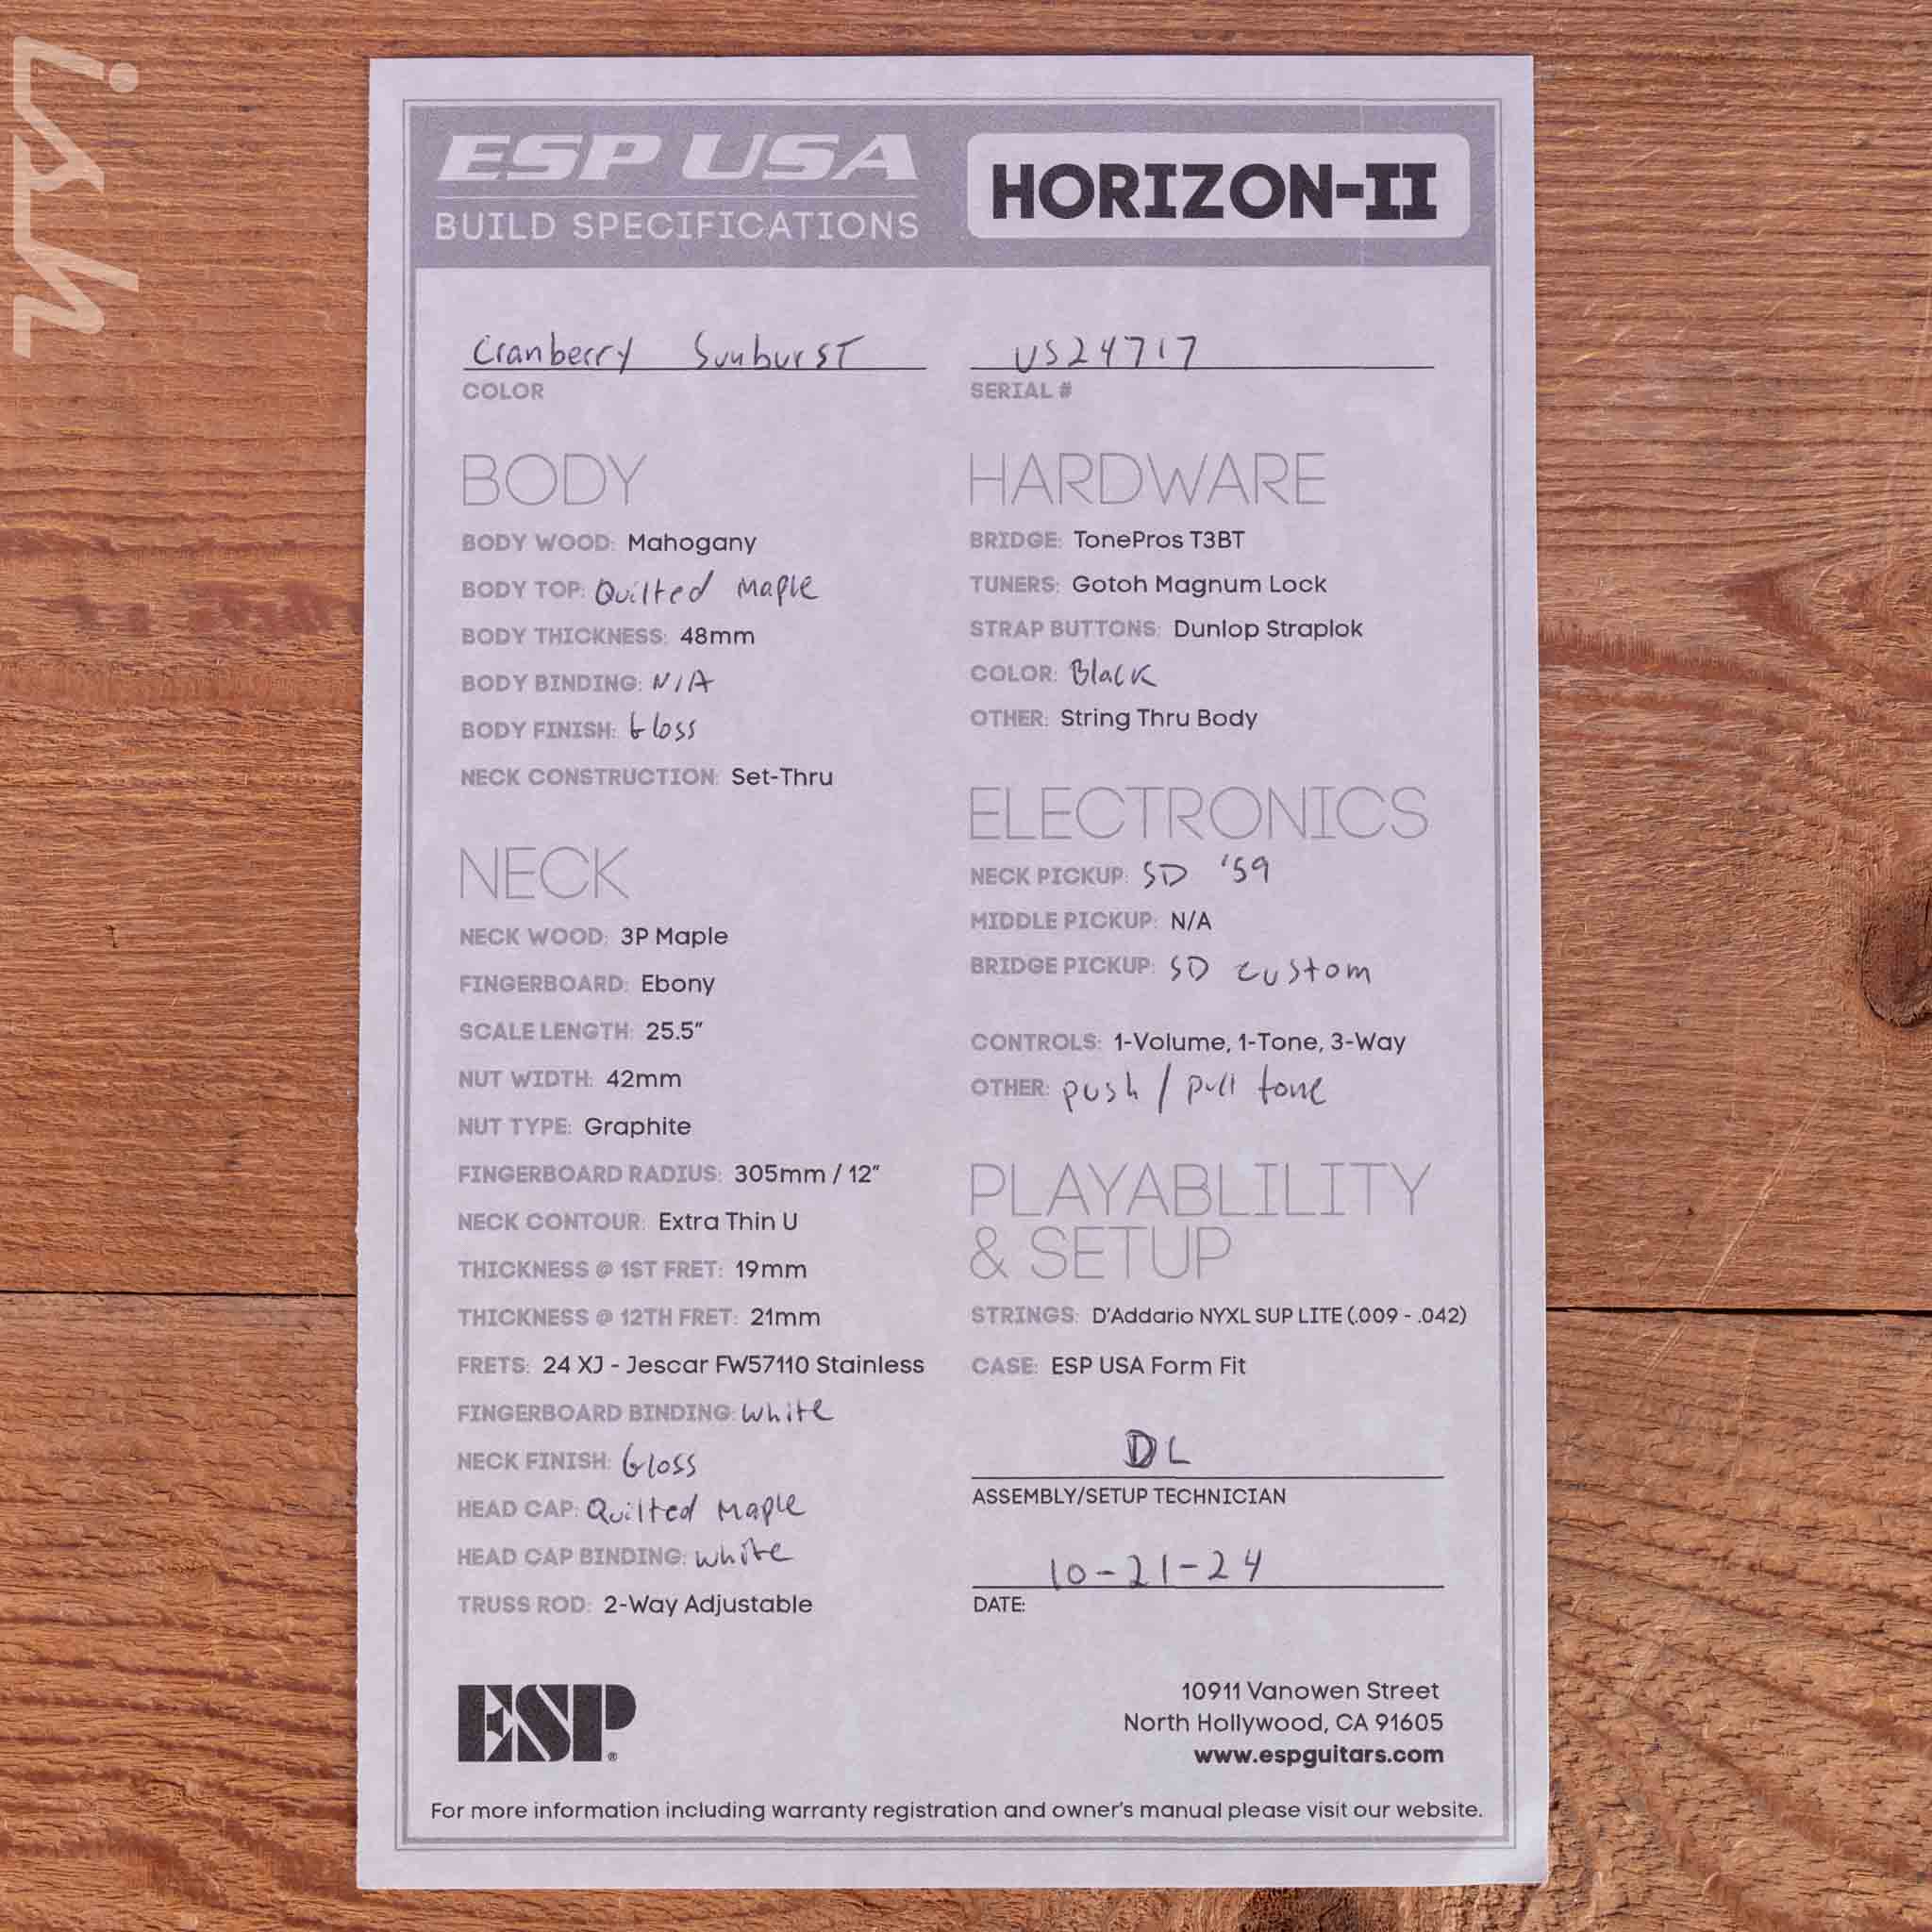 ish
ESP USA
BUILD SPECIFICATIONS
HORIZON-II
Cranberry Sunburst
COLOR
US24717
SERIAL #
BODY
BODY WOOD: Mahogany
BODY TOP: Quilted Maple
BODY THICKNESS: 48mm
BODY BINDING: N/A
BODY FINISH: Gloss
NECK CONSTRUCTION: Set-Thru
NECK
NECK WOOD: 3P Maple
FINGERBOARD: Ebony
SCALE LENGTH: 25.5″
NUT WIDTH: 42mm
NUT TYPE: Graphite
FINGERBOARD RADIUS: 305mm / 12″
NECK CONTOUR: Extra Thin U
THICKNESS @ 1ST FRET: 19mm
THICKNESS @ 12TH FRET: 21mm
FRETS: 24 XJ - Jescar FW57110 Stainless
FINGERBOARD BINDING: White
NECK FINISH: Gloss
HEAD CAP: Quilted Maple
HEAD CAP BINDING: White
TRUSS ROD: 2-Way Adjustable
HARDWARE
BRIDGE: TonePros T3BT
TUNERS: Gotoh Magnum Lock
STRAP BUTTONS: Dunlop Straplok
COLOR: Black
OTHER: String Thru Body
ELECTRONICS
NECK PICKUP: SD '59
MIDDLE PICKUP: N/A
BRIDGE PICKUP: SD custom
CONTROLS: 1-Volume, 1-Tone, 3-Way
OTHER: push / pull tone
PLAYABLILITY
& SETUP
STRINGS: D'Addario NYXL SUP LITE (.009 - .042)
CASE: ESP USA Form Fit
DL
ASSEMBLY/SETUP TECHNICIAN
10-21-24
DATE:
ESP®
10911 Vanowen Street
North Hollywood, CA 91605
www.espguitars.com
For more information including warranty registration and owner's manual please visit our website.